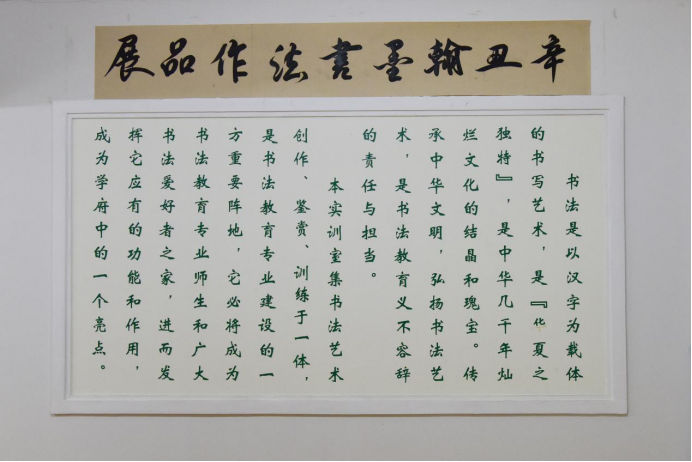 辛丑翰墨書法作品展
书法是以汉字为载体
的书写艺术，是『华夏之
独特』，是中华几千年灿
烂文化的结晶和瑰宝。传
承中华文明，弘扬书法艺
术，是书法教育义不容辞
的责任与担当。
本实训室集书法艺术
创作、鉴赏、训练于一体，
是书法教育专业建设的一
方重要阵地，它必将成为
书法教育专业师生和广大
书法爱好者之家，进而发
挥它应有的功能和作用，
成为学府中的一个亮点。